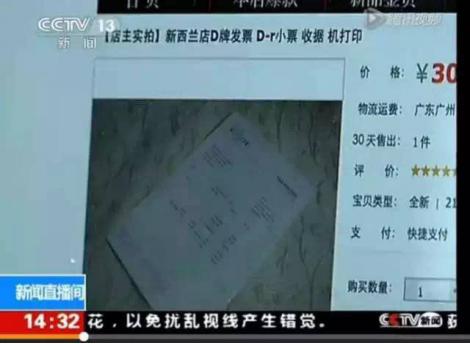 CCTV 13
新闻
腾讯视频
【店主实拍】新西兰店D牌发票 D-r小票 收据 机打印
价 格: ¥30
物流运费: 广东广州
30天售出: 1件
评 价: ★★★★★
宝贝类型: 全新 | 21
支 付: 快捷支付
购买数量: 1
新闻直播间
14:32 花，以免扰乱视线产生错觉。 CCTV新闻 获